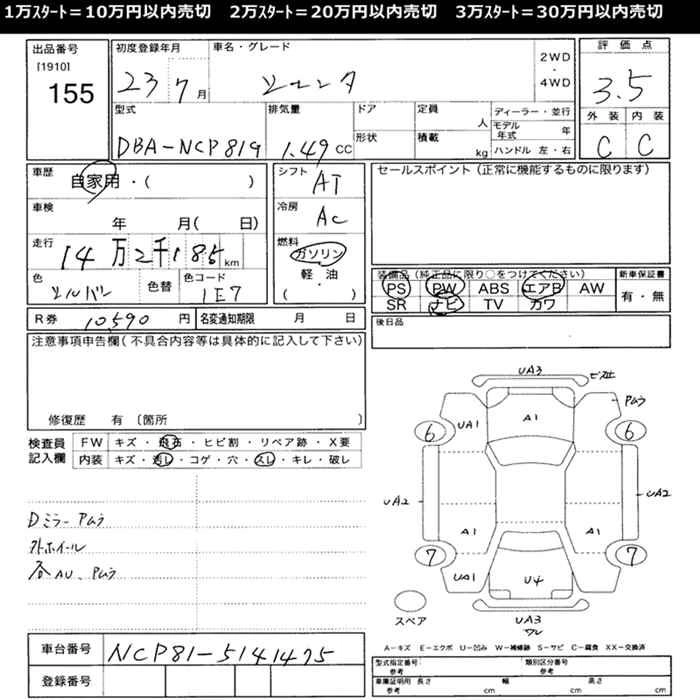 1万ｽﾀｰﾄ＝10万円以内売切　2万ｽﾀｰﾄ＝20万円以内売切　3万ｽﾀｰﾄ＝30万円以内売切
出品番号
[1910]
155
初度登録年月
23 7月
車名・グレード
シエンタ
2WD
・
4WD
評価点
3.5
型式
DBA-NCP81G
排気量
1.49 CC
ドア
形状
定員
人
積載
kg
ディーラー・並行
モデル年式 年
ハンドル 左・右
外装 内装
C C
車歴
自家用・( )
車検
年 月( 日)
走行
14万2千185km
色
シルバー
色替
色コード
1E7
シフト
AT
冷房
AC
燃料
ガソリン
軽・油
( )
セールスポイント（正常に機能するものに限ります）
装備品（純正品に限り○をつけてください）
PS PW ABS エアB AW
SR ナビ TV カワ
新車保証書
有・無
R券 10,590 円
名変通知期限 月 日
後日品
注意事項申告欄（不具合内容等は具体的に記入して下さい）
修復歴 有〔箇所 〕
検査員
記入欄
FW キズ・飛石・ヒビ割・リペア跡・X要
内装 キズ・汚レ・コゲ・穴・スレ・キレ・破レ
Dミラー Pムラ
外ホイール
各AU、Pムラ
UA3
Pムラ
UA1
A1
6
6
UA2
UA2
A1
A1
7
7
UA1
U4
UA3
ワレ
スペア
A－キズ E－エクボ U－凹み W－補修跡 S－サビ C－腐食 XX－交換済
車台番号
NCP81-5141475
登録番号
型式指定番号
参考
類別区分番号
参考
車庫証明用 長さ 幅 高さ
参考 cm cm cm